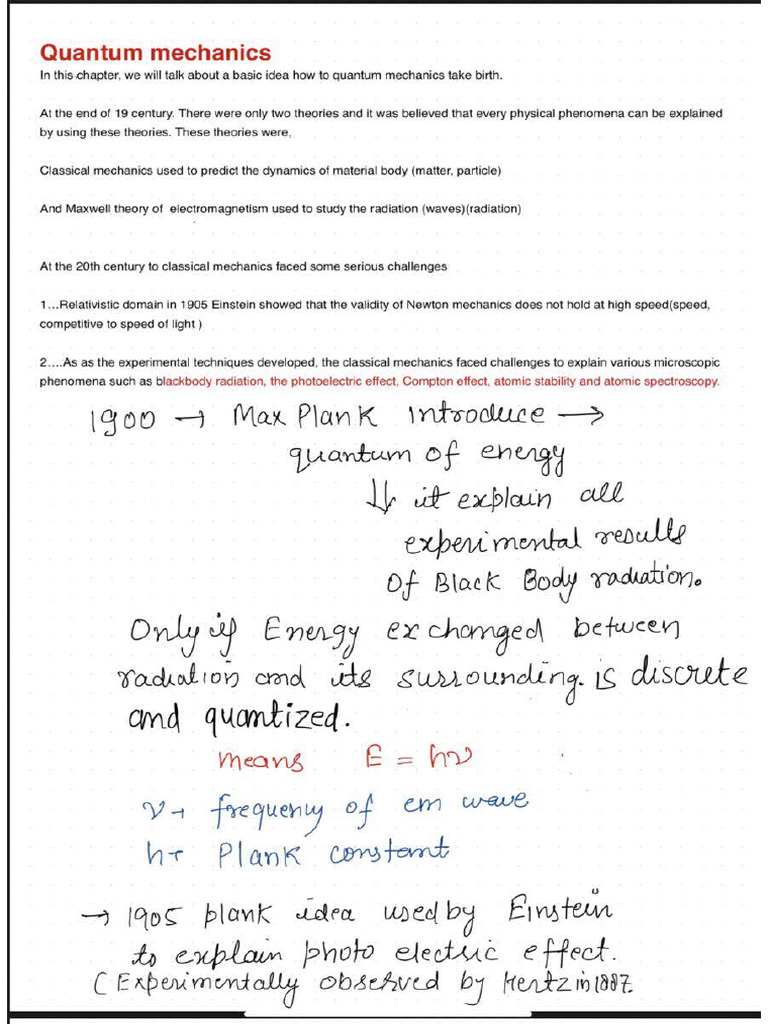 Quantum mechanics
In this chapter, we will talk about a basic idea how to quantum mechanics take birth.
At the end of 19 century. There were only two theories and it was believed that every physical phenomena can be explained
by using these theories. These theories were,
Classical mechanics used to predict the dynamics of material body (matter, particle)
And Maxwell theory of electromagnetism used to study the radiation (waves)(radiation)
At the 20th century to classical mechanics faced some serious challenges
1...Relativistic domain in 1905 Einstein showed that the validity of Newton mechanics does not hold at high speed(speed,
competitive to speed of light )
2....As as the experimental techniques developed, the classical mechanics faced challenges to explain various microscopic
phenomena such as blackbody radiation, the photoelectric effect, Compton effect, atomic stability and atomic spectroscopy.
1900 → Max Plank introduce →
quantum of energy
⇓ it explain all
experimental results
Of Black Body radiation.
Only if Energy exchanged between
radiation and its surrounding. is discrete
and quantized.
means E = hν
ν → frequency of em wave
h → Plank constant
→ 1905 plank idea used by Einstein
to explain photo electric effect.
( Experimentally observed by Hertz in 1887.